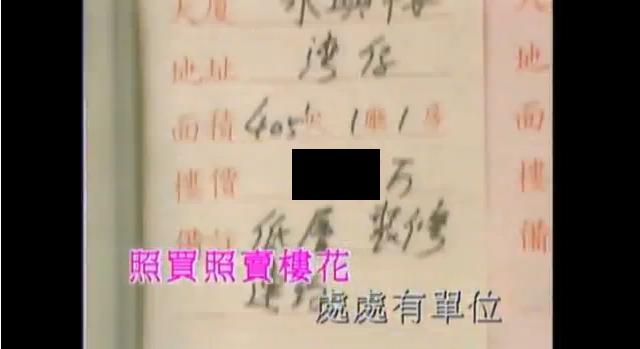 大廈
地址 灣仔
面積 405呎 1廳1房
樓價 万
備註 低層 裝修
照買照賣樓花
處處有單位
地
面
樓
備